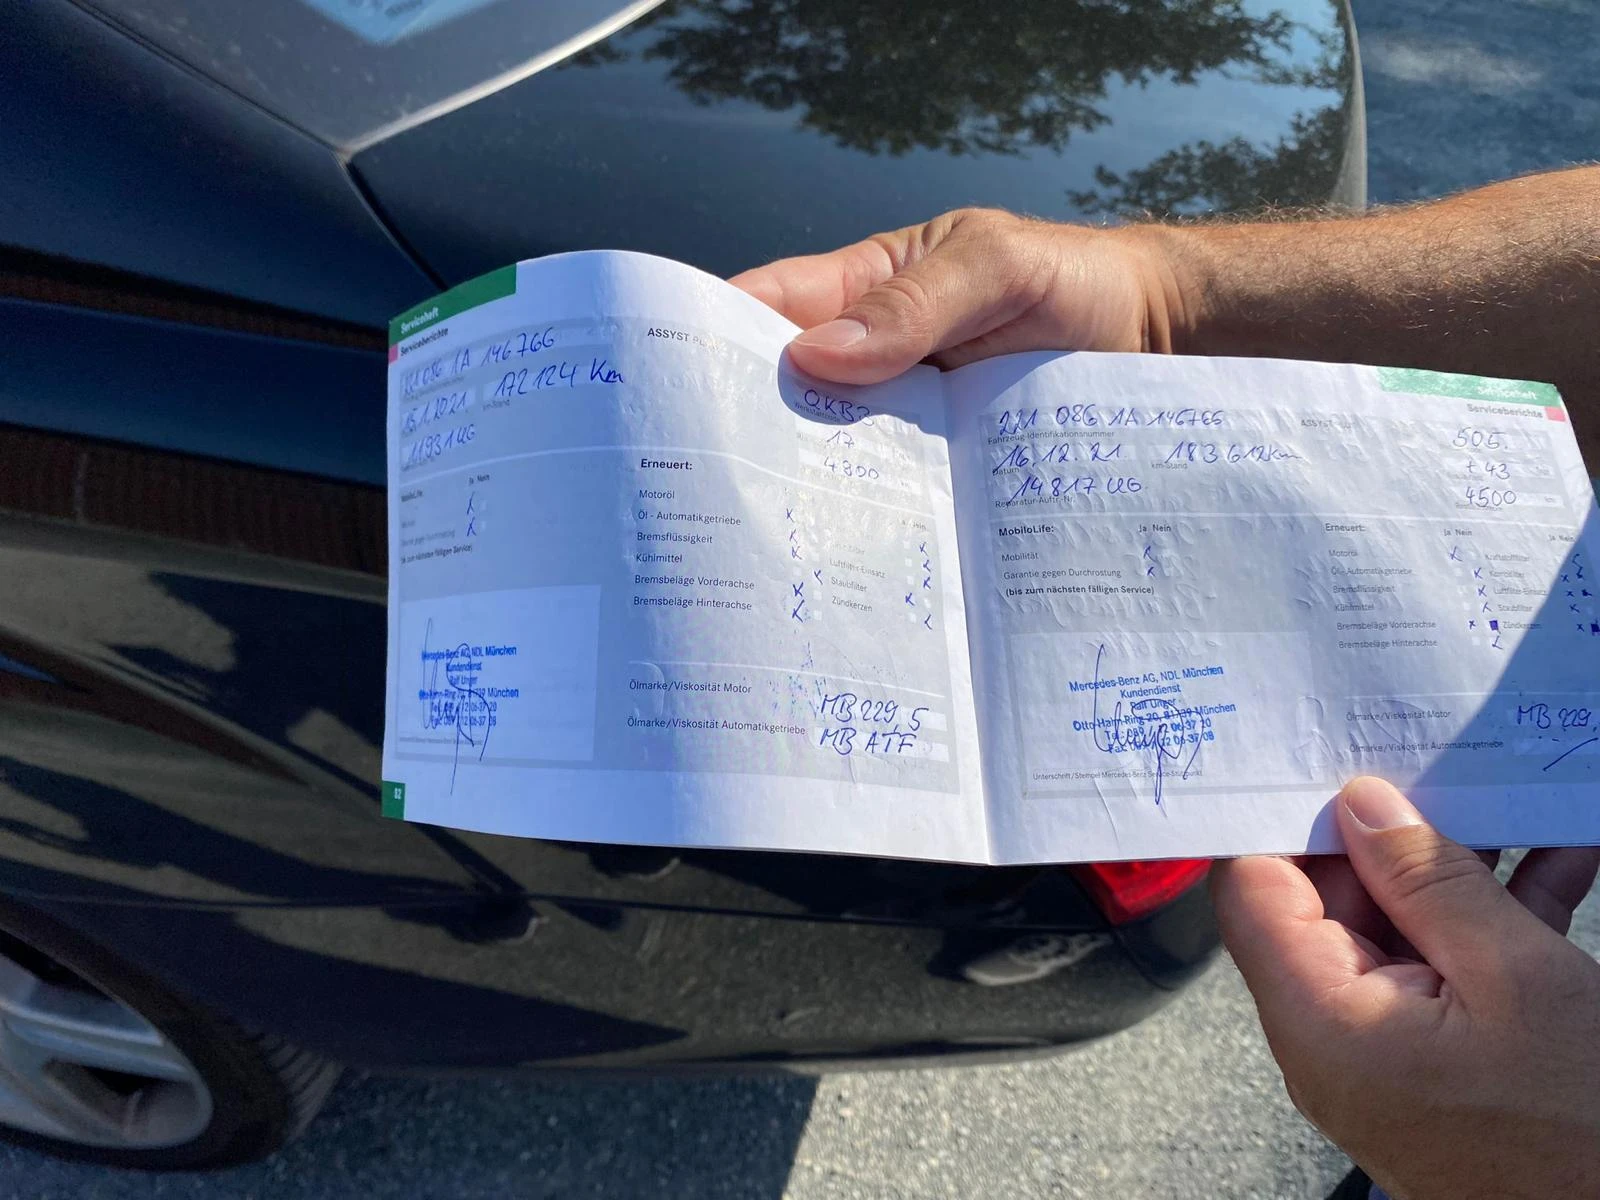 Serviceheft
Serviceberichte
221 086 1A 146766
15.1.2021 172 124 Km
km-Stand
11931 UG
MobiloLife: Ja Nein
(bis zum nächsten fälligen Service)
Mercedes-Benz AG, NDL München
Kundendienst
Ralf Unger
Otto-Hahn-Ring 20, 81739 München
Tel.: 089 / 12 06-37 20
Fax: 089 / 12 06-37 08
52
ASSYST
17
4800
Erneuert:
Motoröl
Öl - Automatikgetriebe
Bremsflüssigkeit
Kühlmittel
Bremsbeläge Vorderachse
Bremsbeläge Hinterachse
Luftfilter-Einsatz
Staubfilter
Zündkerzen
Ölmarke/Viskosität Motor MB 229,5
Ölmarke/Viskosität Automatikgetriebe MB ATF
Serviceheft
Serviceberichte
221 086 1A 146766
Fahrzeug-Identifikationsnummer
16.12.21. 183 612 km
Datum km-Stand
14817 UG
Reparatur-Auftr.-Nr.
505.
+ 43
4500 km
MobiloLife: Ja Nein
Mobilität
Garantie gegen Durchrostung
(bis zum nächsten fälligen Service)
Mercedes-Benz AG, NDL München
Kundendienst
Ralf Unger
Otto-Hahn-Ring 20, 81739 München
Tel.: 089 / 12 06-37 20
Fax: 089 / 12 06-37 08
Unterschrift/Stempel Mercedes-Benz Service-Stützpunkt
Erneuert: Ja Nein
Motoröl
Öl - Automatikgetriebe
Bremsflüssigkeit
Kühlmittel
Bremsbeläge Vorderachse
Bremsbeläge Hinterachse
Ja Nein
Kraftstofffilter
Kombifilter
Luftfilter-Einsatz
Staubfilter
Zündkerzen
Ölmarke/Viskosität Motor MB 229,
Ölmarke/Viskosität Automatikgetriebe